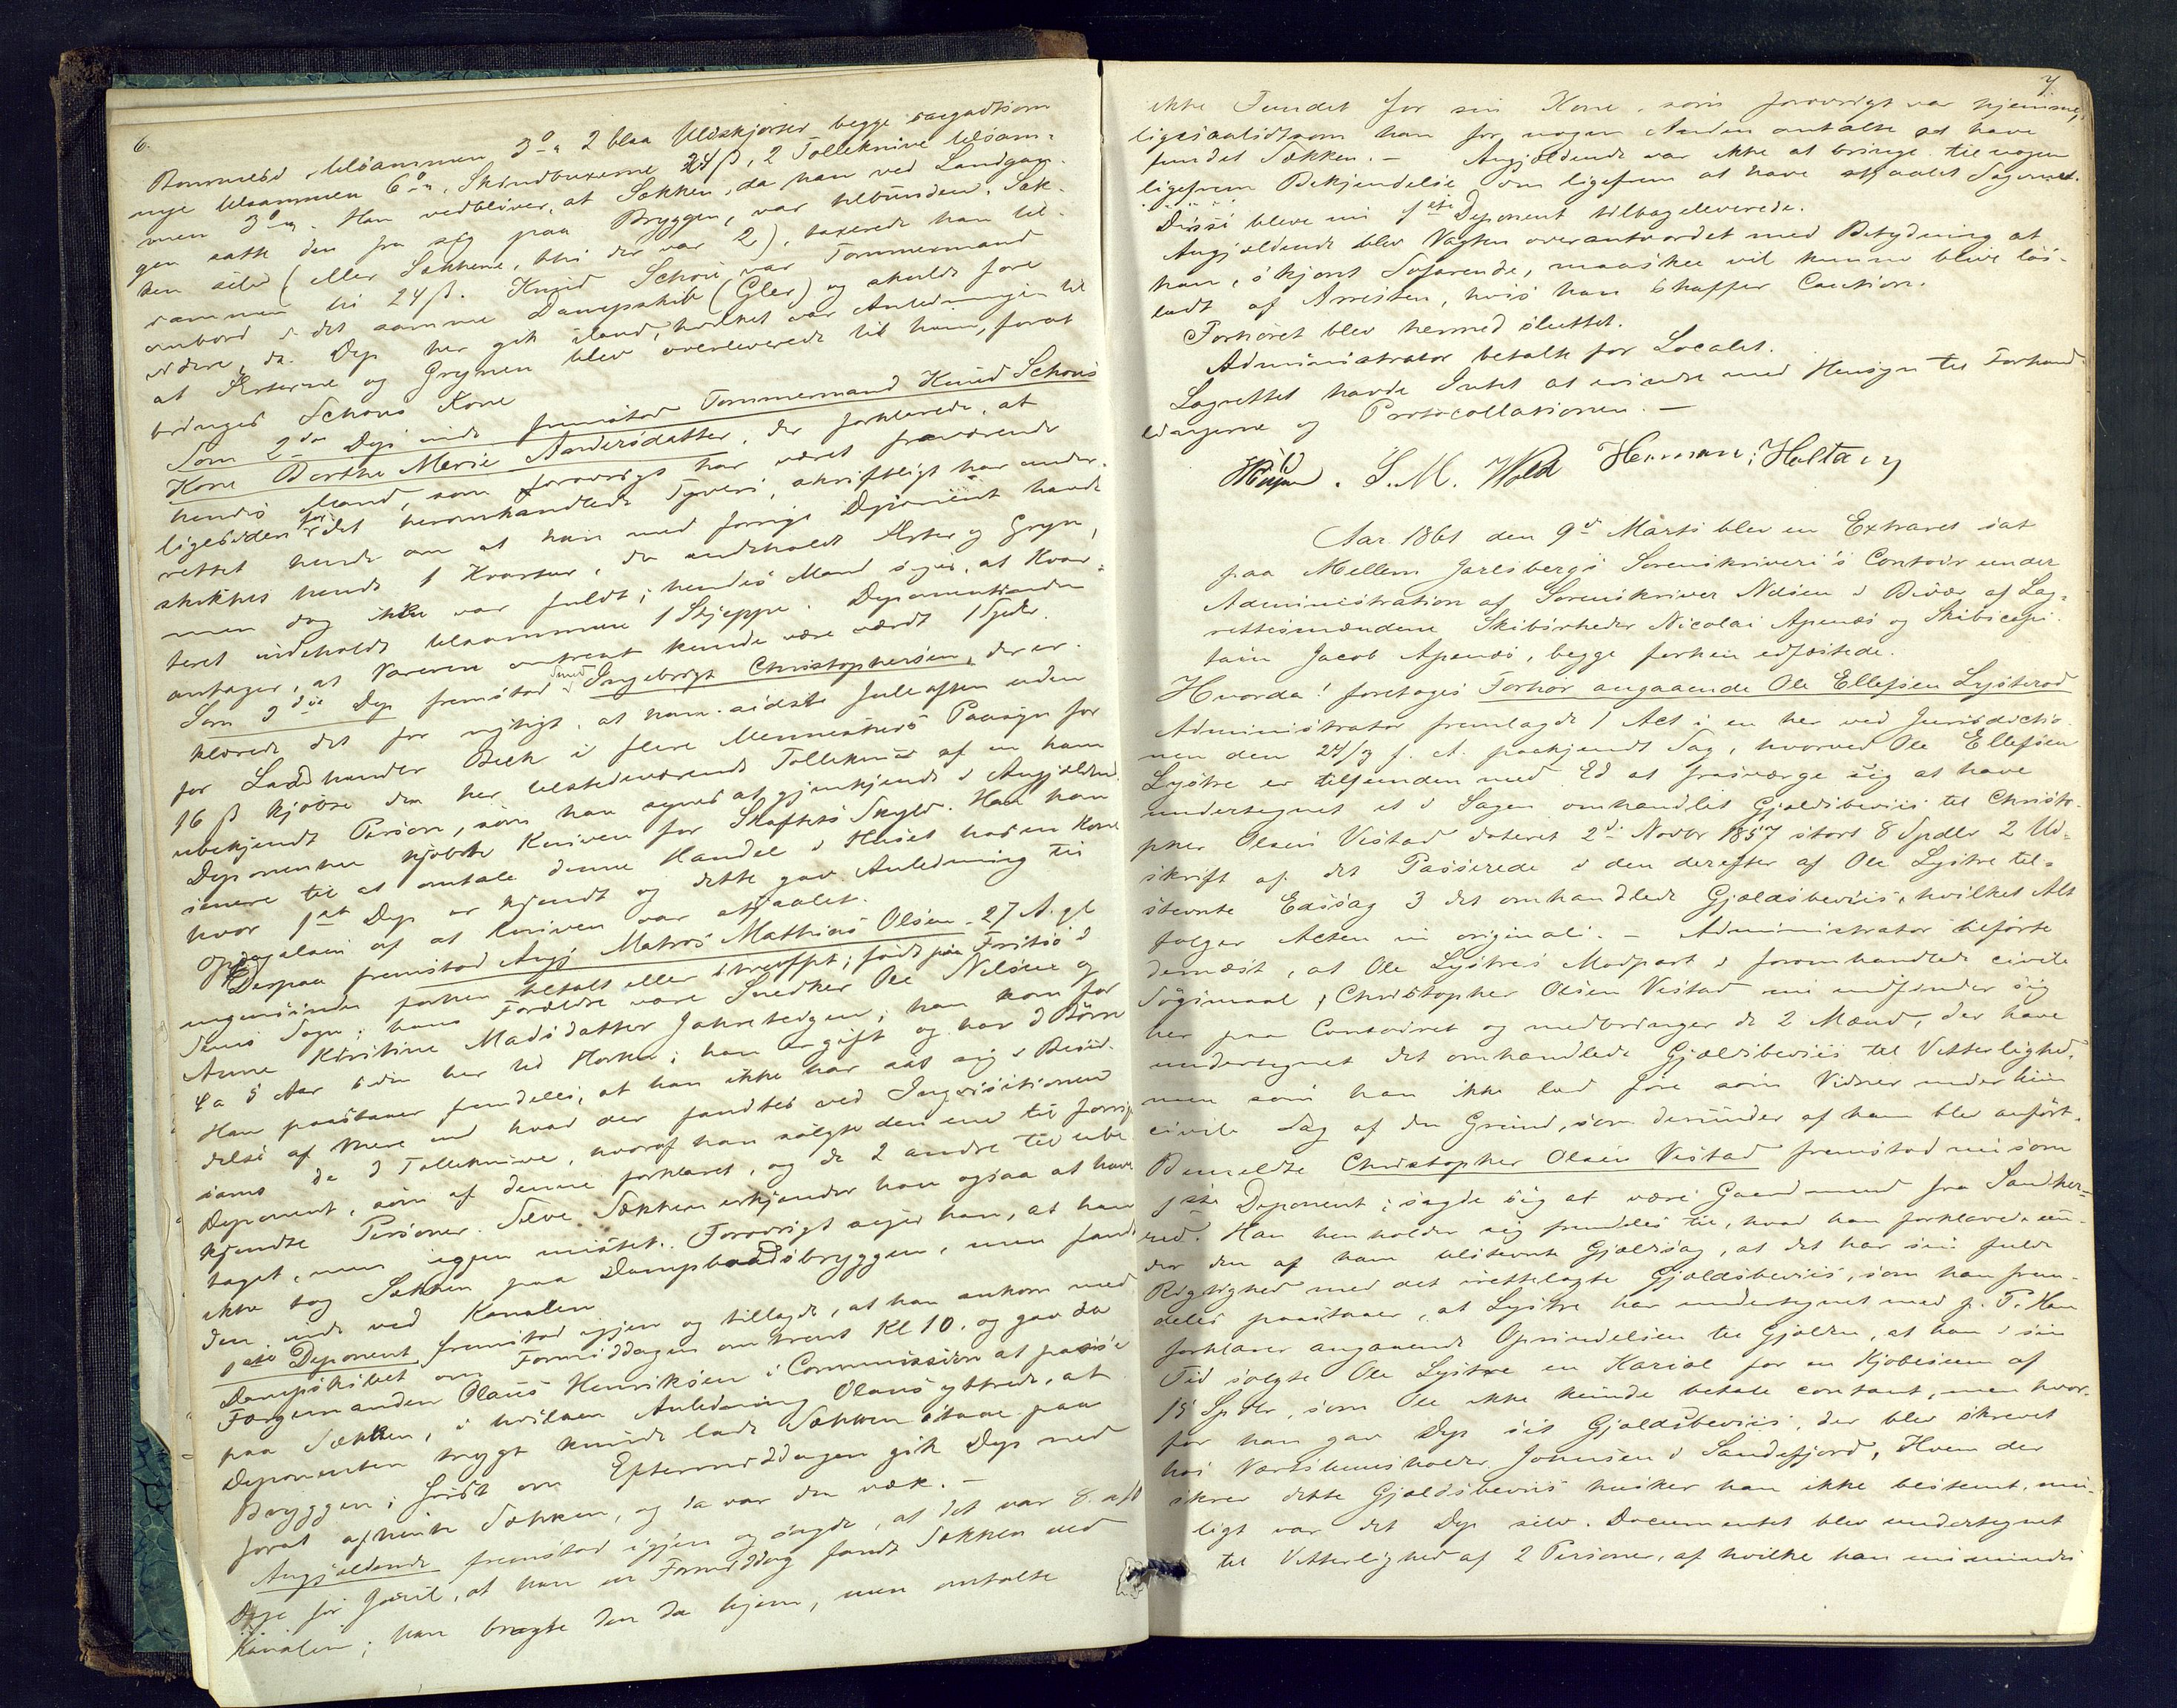 6.
Bommesi tilsammen 3 o/n 2 blaa Uldskjorter begge saagodtsom
nye tilsammen 6 o/n, Skindbuxerne 24 β, 2 Tolleknive tilsam-
men 3 o/n. Han vedbliver, at Sækken, da han ved Landgan-
gen satte den fra sig paa Bryggen, var tilbunden. Sæk-
ken selv (eller Sækkene, thi der var 2), taxerede han til-
sammen til 24 β. Knud Schou var Tømmermand
ombord i det samme Dampskib (Gler) og skulde fare
videre, da Dep her gik iland, hvilket var Anledningen til
at Ærterne og Grynen blev overleverede til ham, forat
bringes Schous Kone
Som 2den Dep inde fremstod Tømmermand Knud Schous
Kone Berthe Marie Andersdatter, der forklarede, at
hendes Mand, som forøvrigt har været fraværende
ligesiden før det heromhandlede Tyveri, skriftligt har under-
rettet hende om at han med forrige Deponent havde
skikket hende 1 Kvarter, der indeholdt Ærter og Gryn,
men dog ikke var fuldt; hendes Mand siger, at Kvar-
teret indeholdt tilsammen 1 Skjeppe. Deponentinden
antager, at Varerne omtrent kunde være værdt 1 Spdlr.
Som 3die Dep fremstod Smed Ingebrigt Christophersen, der er-
klærede det for rigtigt, at han sidste Juleaften uden
for Landhandler Bech i flere Menneskers Paasyn for
16 β kjøbte den her tilstedeværende Tollekniv af en ham
ubekjendt Person, som han synes at gjenkjende i Angjældende.
Deponenten kjøbte Kniven for Skaftets Skyld. Han kom
senere til at omtale denne Handel i Huset hos en Kone
hvor 1ste Dep er kjendt og dette gav Anledning til
Opdagelsen af at Kniven var stjaalet.
Derpaa fremstod Angj Matros Mathias Olsen 27 A. gl
ingensinde forhen tiltalt eller straffet; født paa Fritsø i
Sems Sogn; hans Forældre vare Snedker Ole Nilsen og
Anne Kirstine Madsdatter Jahrsteigen; han kom for
4 a 5 Aar siden her til Horten; han er gift og har 3 Børn
Han paastaaer fremdeles, at han ikke har sat sig i Besid-
delse af mere end hvad der fandtes ved Inqvisitionen
samt de 3 Tolleknive, hvoraf han solgte den ene til forrige
Deponent, som af denne forklaret, og de 2 andre til ube-
kjendte Personer. Selve Sækken erkjender han ogsaa at have
taget, men igjen mistet. Forøvrigt siger han, at han
ikke tog Sækken paa Dampbaadsbryggen, men fandt
den inde ved Kanalen
1ste Deponent fremstod igjen og tillagde, at han ankom med
Dampskibet om Formiddagen omtrent Kl 10, og gav da
Færgemanden Olaus Henriksen i Commission at passe
paa Sækken, i hvilken Anledning Olaus yttrede, at
Deponenten trygt kunde lade Sækken staae paa
Bryggen; først om Eftermiddagen gik Dep ned
forat afhente Sækken, og da var den væk. –
Angjældende fremstod igjen og sagde, at det var 8 a 10
Dage før Juul, at han en Formiddag fandt Sækken ved
Kanalen; han bragte den da hjem, men omtalte
7
ikke Fundet for sin Kone, som forøvrigt var hjemme,
ligesaalidtsom han for nogen Anden omtalte at have
fundet Sækken. – Angjældende var ikke at bringe til nogen
ligefrem Bekjendelse om ligefrem at have stjaalet Sagerne.
Disse bleve nu 1ste Deponent tilbageleverede.
Angjældende blev Vagten overantvordet med Betydning at
han, skjønt Søfarende, maaskee vil kunne blive løs-
ladt af Arresten, hvis han skaffer Caution.
Forhøret blev hermed sluttet.
Administrator betalte for Localet.
Lagrettet havde Intet at erindre med Hensyn til Forhand-
lingerne og Protocollationen. –
S. M. Wold Herman Holtan
Aar 1861 den 9de Marts blev en Extraret sat
paa Mellem Jarlsbergs Sorenskriveri's Contoir under
Administration af Sorenskriver Nilsen i Bivær af Lag-
rettesmændene Skibsrheder Nicolai Apenæs og Skibscapi-
tain Jacob Apenæs, begge forhen edfæstede.
Hvorda! foretoges Forhør angaaende Ole Ellefsen Lystvod
Administrator fremlagde 1 Act i en her ved Jurisdictio-
nen den 24/9 f. A. paakjendt Sag, hvorved Ole Ellefsen
Lystre er tilfunden med Ed at frasværge sig at have
undertegnet et i Sagen omhandlet Gjældsbeviis til Christo-
pher Olsen Vestad dateret 2de Novbr 1857 stort 8 Spdlr 2 Ud-
skrift af det Passerede i den derefter af Ole Lystre til-
stevnte Edssag 3 det omhandlede Gjældsbeviis, hvilket Alt
følger Acten in originali. – Administrator tilførte
dernæst, at Ole Lystres Modpart i foromhandlede civile
Søgsmaal, Christopher Olsen Vestad nu indfinder sig
her paa Contoiret og medbringer de 2 Mænd, der have
undertegnet det omhandlede Gjældsbeviis til Vitterlighed,
men som han ikke lod føre som Vidner under hiin
civile Sag af den Grund, som derunder af ham blev anført.
Bemeldte Christopher Olsen Vestad fremstod nu som
1ste Deponent; sagde sig at være Gaardmand fra Sandher-
red. Han henholder sig fremdeles til, hvad han forklarede un-
der den af ham tilstevnte Gjældssag, at det har sin fulde
Rigtighed med det irettelagte Gjældsbeviis, som han frem-
deles paastaaer, at Lystre har undertegnet med p. P. Han
forklarer angaaende Oprindelsen til Gjælden, at han i sin
Tid solgte Ole Lystre en Kariol for en Kjøbesum af
15 Spdlr, som Ole ikke kunde betale contant, men hvor-
for han gav Dep sit Gjældsbeviis, der blev skrevet
hos Værtshuusholder Johnsen i Sandefjord, Hvem der
skrev dette Gjældsbeviis husker han ikke bestemt, mu-
ligt var det Dep selv. Documentet blev undertegnet
til Vitterlighed af 2 Personer, af hvilke han nu mindes